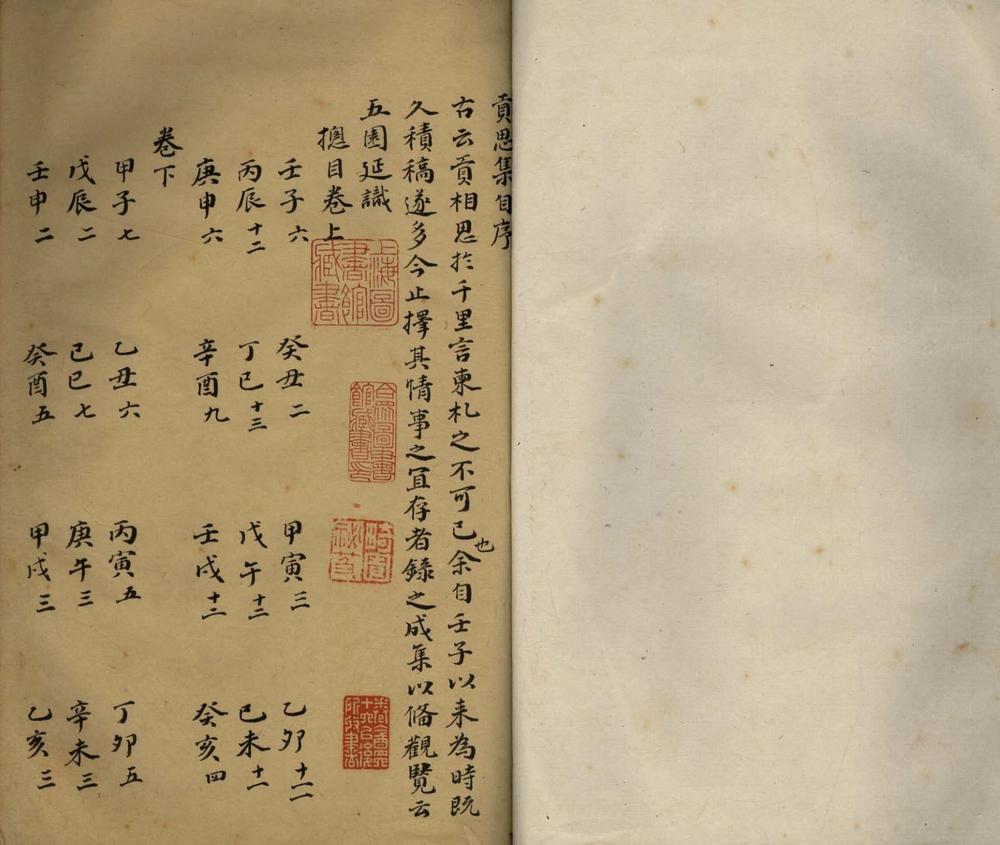 貢思集自序
古云貢相思於千里言柬札之不可已也余自壬子以来為時既
久積稿遂多今止擇其情事之宜存者錄之成集以俻觀覽云
五園延識
摠目卷上
壬子六 癸丑二 甲寅三 乙卯十二
丙辰十二 丁巳十三 戊午十二 己未十一
庚申六 辛酉九 壬戌十二 癸亥四
卷下
甲子七 乙丑六 丙寅五 丁卯五
戊辰二 己巳七 庚午三 辛未三
壬申二 癸酉五 甲戌三 乙亥三
上海圖書館藏書